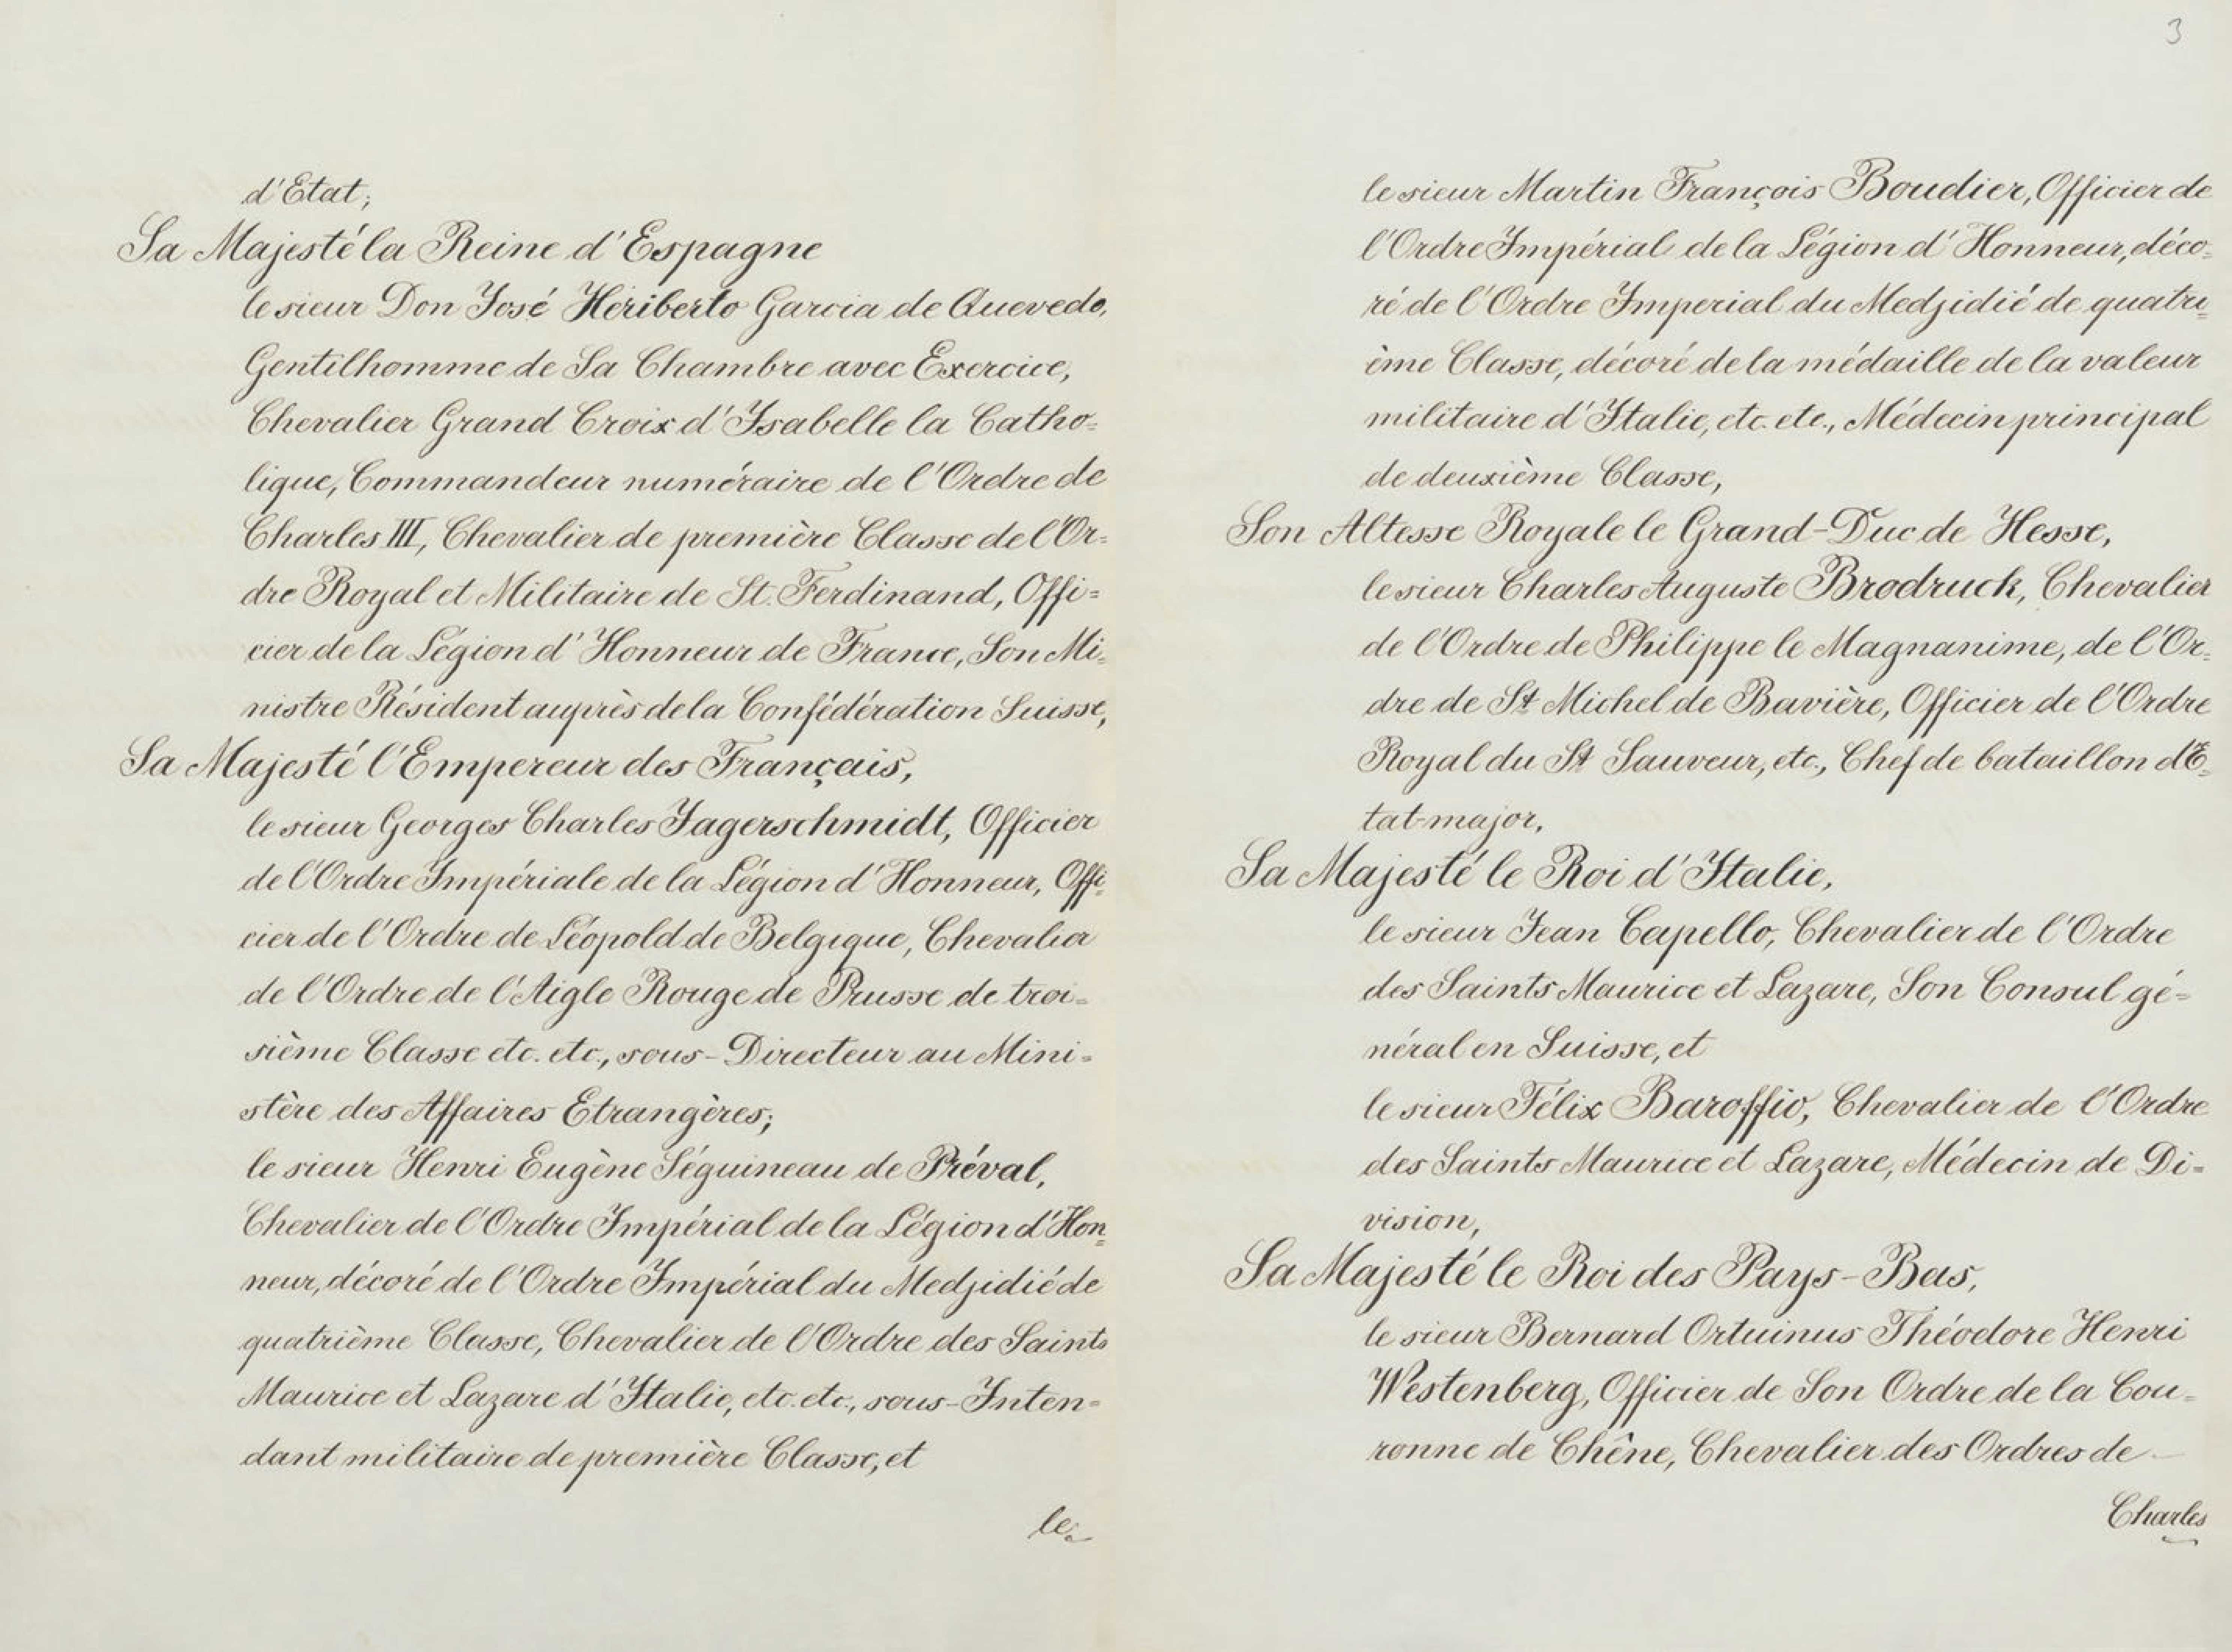 d'Etat;
Sa Majesté la Reine d'Espagne
le sieur Don José Heriberto Garcia de Quevedo,
Gentilhomme de Sa Chambre avec Exercice,
Chevalier Grand Croix d'Isabelle la Catho=
lique, Commandeur numéraire de l'Ordre de
Charles III, Chevalier de première Classe de l'Or=
dre Royal et Militaire de St. Ferdinand, Offi=
cier de la Légion d'Honneur de France, Son Mi=
nistre Résident auprès de la Confédération Suisse,
Sa Majesté l'Empereur des Français,
le sieur Georges Charles Jagerschmidt, Officier
de l'Ordre Impériale de la Légion d'Honneur, Offi=
cier de l'Ordre de Léopold de Belgique, Chevalier
de l'Ordre de l'Aigle Rouge de Prusse de troi=
sième Classe etc. etc., sous-Directeur au Mini=
stère des Affaires Etrangères;
le sieur Henri Eugène Séguineau de Préval,
Chevalier de l'Ordre Impérial de la Légion d'Hon=
neur, décoré de l'Ordre Impérial du Medjidié de
quatrième Classe, Chevalier de l'Ordre des Saints
Maurice et Lazare d'Italie, etc. etc., sous-Inten=
dant militaire de première Classe, et
le
3
le sieur Martin François Boudier, Officier de
l'Ordre Impérial de la Légion d'Honneur, déco=
ré de l'Ordre Imperial du Medjidié de quatri=
ème Classe, décoré de la médaille de la valeur
militaire d'Italie, etc. etc., Médecin principal
de deuxième Classe,
Son Altesse Royale le Grand-Duc de Hesse,
le sieur Charles Auguste Brodruck, Chevalier
de l'Ordre de Philippe le Magnanime, de l'Or=
dre de St Michel de Bavière, Officier de l'Ordre
Royal du St Sauveur, etc., Chef de bataillon d'E=
tat-major,
Sa Majesté le Roi d'Italie,
le sieur Jean Capello, Chevalier de l'Ordre
des Saints Maurice et Lazare, Son Consul gé=
néral en Suisse, et
le sieur Félix Baroffio, Chevalier de l'Ordre
des Saints Maurice et Lazare, Médecin de Di=
vision,
Sa Majesté le Roi des Pays-Bas,
le sieur Bernard Ortuinus Théodore Henri
Westenberg, Officier de Son Ordre de la Cou=
ronne de Chêne, Chevalier des Ordres de
Charles